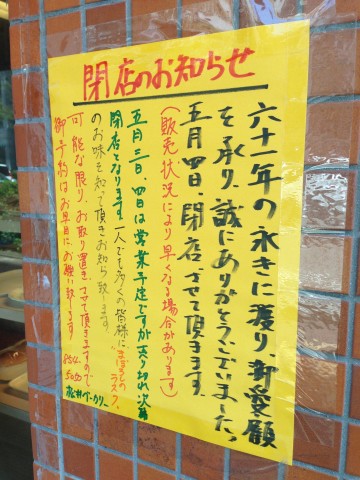 閉店のお知らせ
六十一年の永きに渡り、御愛顧
を承り、誠にありがとうございました。
五月四日、閉店させて頂きます。
(販売状況により早くなる場合があります)
五月三日、四日は営業予定ですが売り切れ次第
閉店となります。一人でも多くの皆様に、まぼろしのラスク、
のお味を知って頂きお知らせ致します。
可能な限り、お取り置きさせて頂きますので
御予約はお早目に、お願い致します。
松井ベーカリー